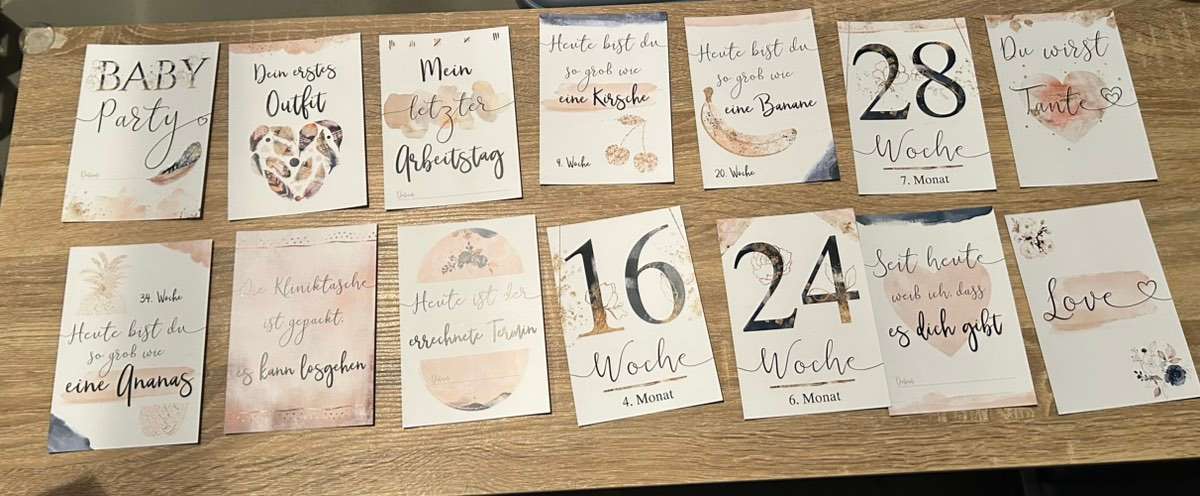 BABY
Party
Datum:
Dein erstes
Outfit
Mein
letzter
Arbeitstag
Datum:
Heute bist du
so groß wie
eine Kirsche
9. Woche
Heute bist du
so groß wie
eine Banane
20. Woche
28
Woche
7. Monat
Du wirst
Tante
34. Woche
Heute bist du
so groß wie
eine Ananas
Die Kliniktasche
ist gepackt,
es kann losgehen
Heute ist der
errechnete Termin
Datum:
16
Woche
4. Monat
24
Woche
6. Monat
Seit heute
weiß ich, dass
es dich gibt
Datum:
Love